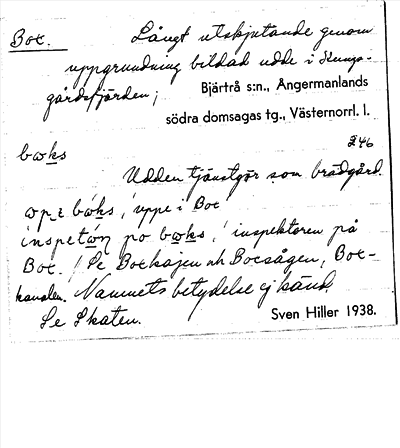 Box. Långt utskjutande genom
uppgrundning bildad udde i Kungs-
gårdsfjärden;
Bjärtrå s:n., Ångermanlands
södra domsagas tg., Västernorrl. l.
246
boks
Udden tjänstgör som brädgård.
op i boks, 'uppe i Box'
inspetön po boks, 'inspektoren på
Box.' Se Boxkajen och Boxsågen, Box-
kanalen. Namnets betydelse ej känd.
Se Skaten.
Sven Hiller 1938.